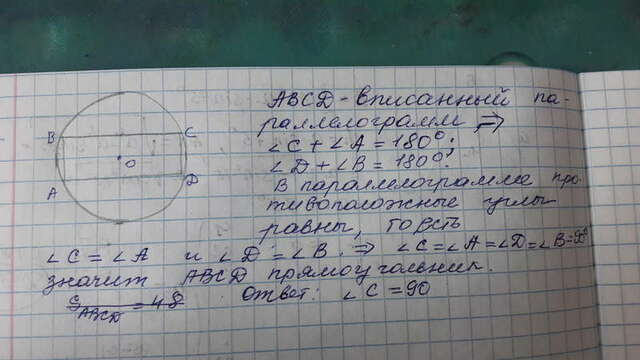 B
C
O
A
D
ABCD - вписанный па-
раллелограмм, ⇒
∠C + ∠A = 180°;
∠D + ∠B = 180°;
В параллелограмме про-
тивоположные углы
равны, то есть
∠C = ∠A и ∠D = ∠B. ⇒ ∠C = ∠A = ∠D = ∠B = 90°
значит ABCD прямоугольник.
Ответ: ∠C = 90